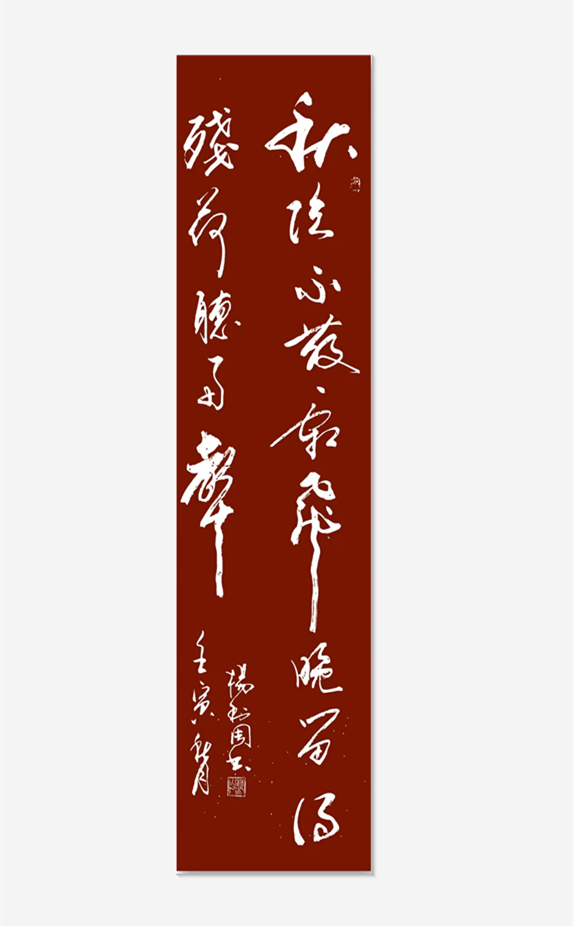 秋陰不散霜飛晚留得
殘荷聽雨聲
壬寅秋月
楊利國書